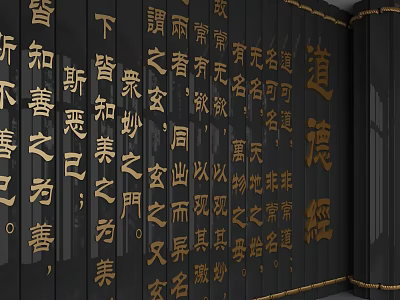 道德經
道可道，非常道，
名可名，非常名。
无名，天地之始，
有名，萬物之母。
故常无欲，以观其妙
常有欲，以观其
兩者，同出而异名
謂之玄，玄之又玄
衆妙之门。
下皆知美之为美
斯恶已；
皆知善之为善，
斯不善已。